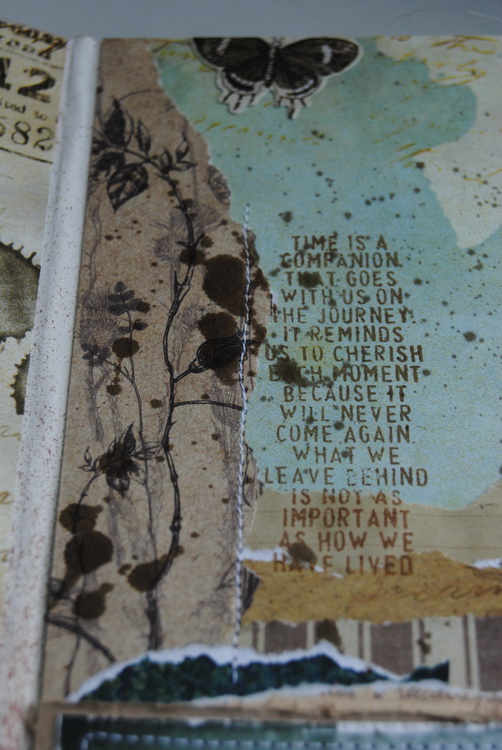 42
582
TIME IS A
COMPANION
THAT GOES
WITH US ON
THE JOURNEY.
IT REMINDS
US TO CHERISH
EACH MOMENT
BECAUSE IT
WILL NEVER
COME AGAIN.
WHAT WE
LEAVE BEHIND
IS NOT AS
IMPORTANT
AS HOW WE
HAVE LIVED